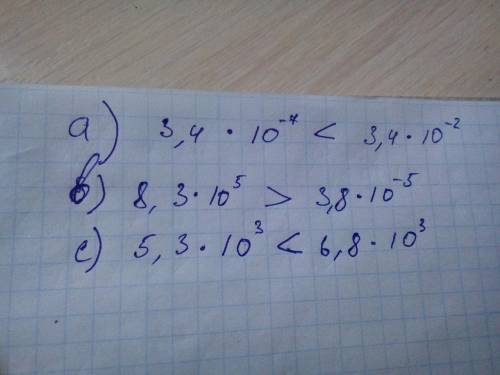 a) 3,4 · 10⁻⁷ < 3,4 · 10⁻²
б) 8,3 · 10⁵ > 3,8 · 10⁻⁵
c) 5,3 · 10³ < 6,8 · 10³